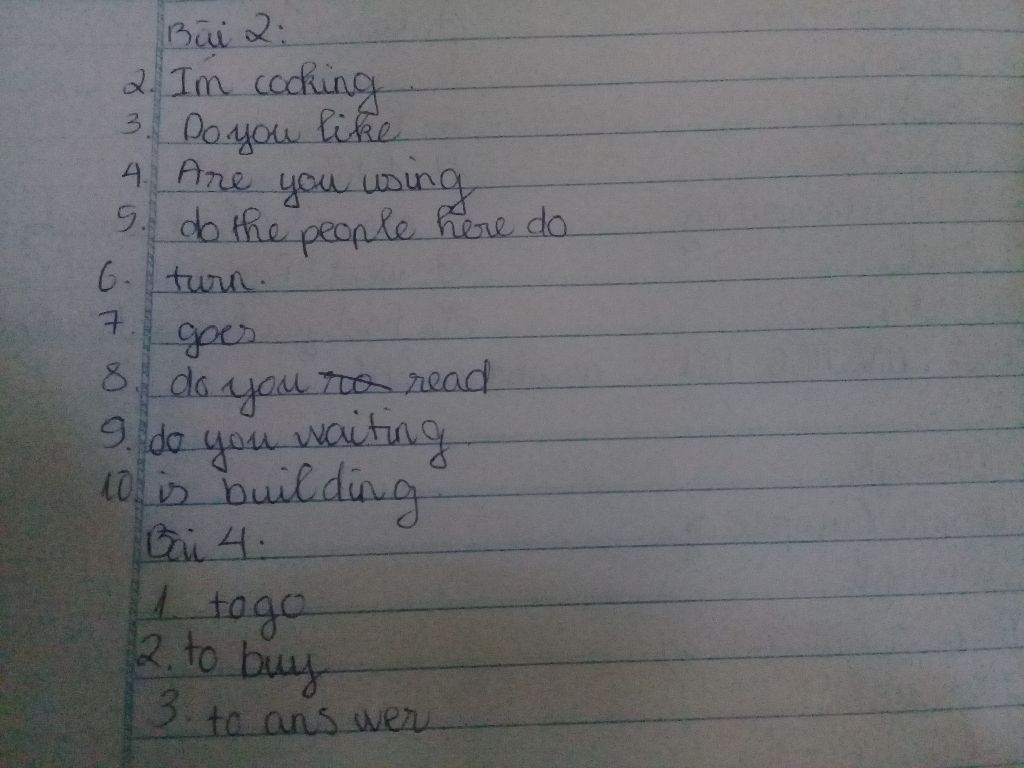 Bài 2:
2. I'm cooking
3. Do you like
4. Are you using
5. do the people here do
6. turn.
7. goes
8. do you ro read
9. do you waiting
10. is building
Bài 4.
1. to go
2. to buy
3. to answer